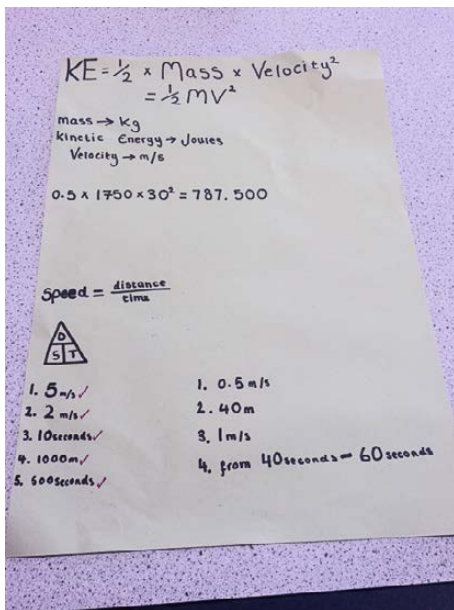 KE = ½ × Mass × Velocity²
= ½ MV²
mass → Kg
Kinetic Energy → Joules
Velocity → m/s
0.5 × 1750 × 30² = 787.500
Speed = distance
time
D
S T
1. 5 m/s ✓
2. 2 m/s ✓
3. 10seconds ✓
4. 1000m ✓
5. 600seconds ✓
1. 0.5 m/s
2. 40m
3. 1m/s
4. from 40seconds - 60 seconds